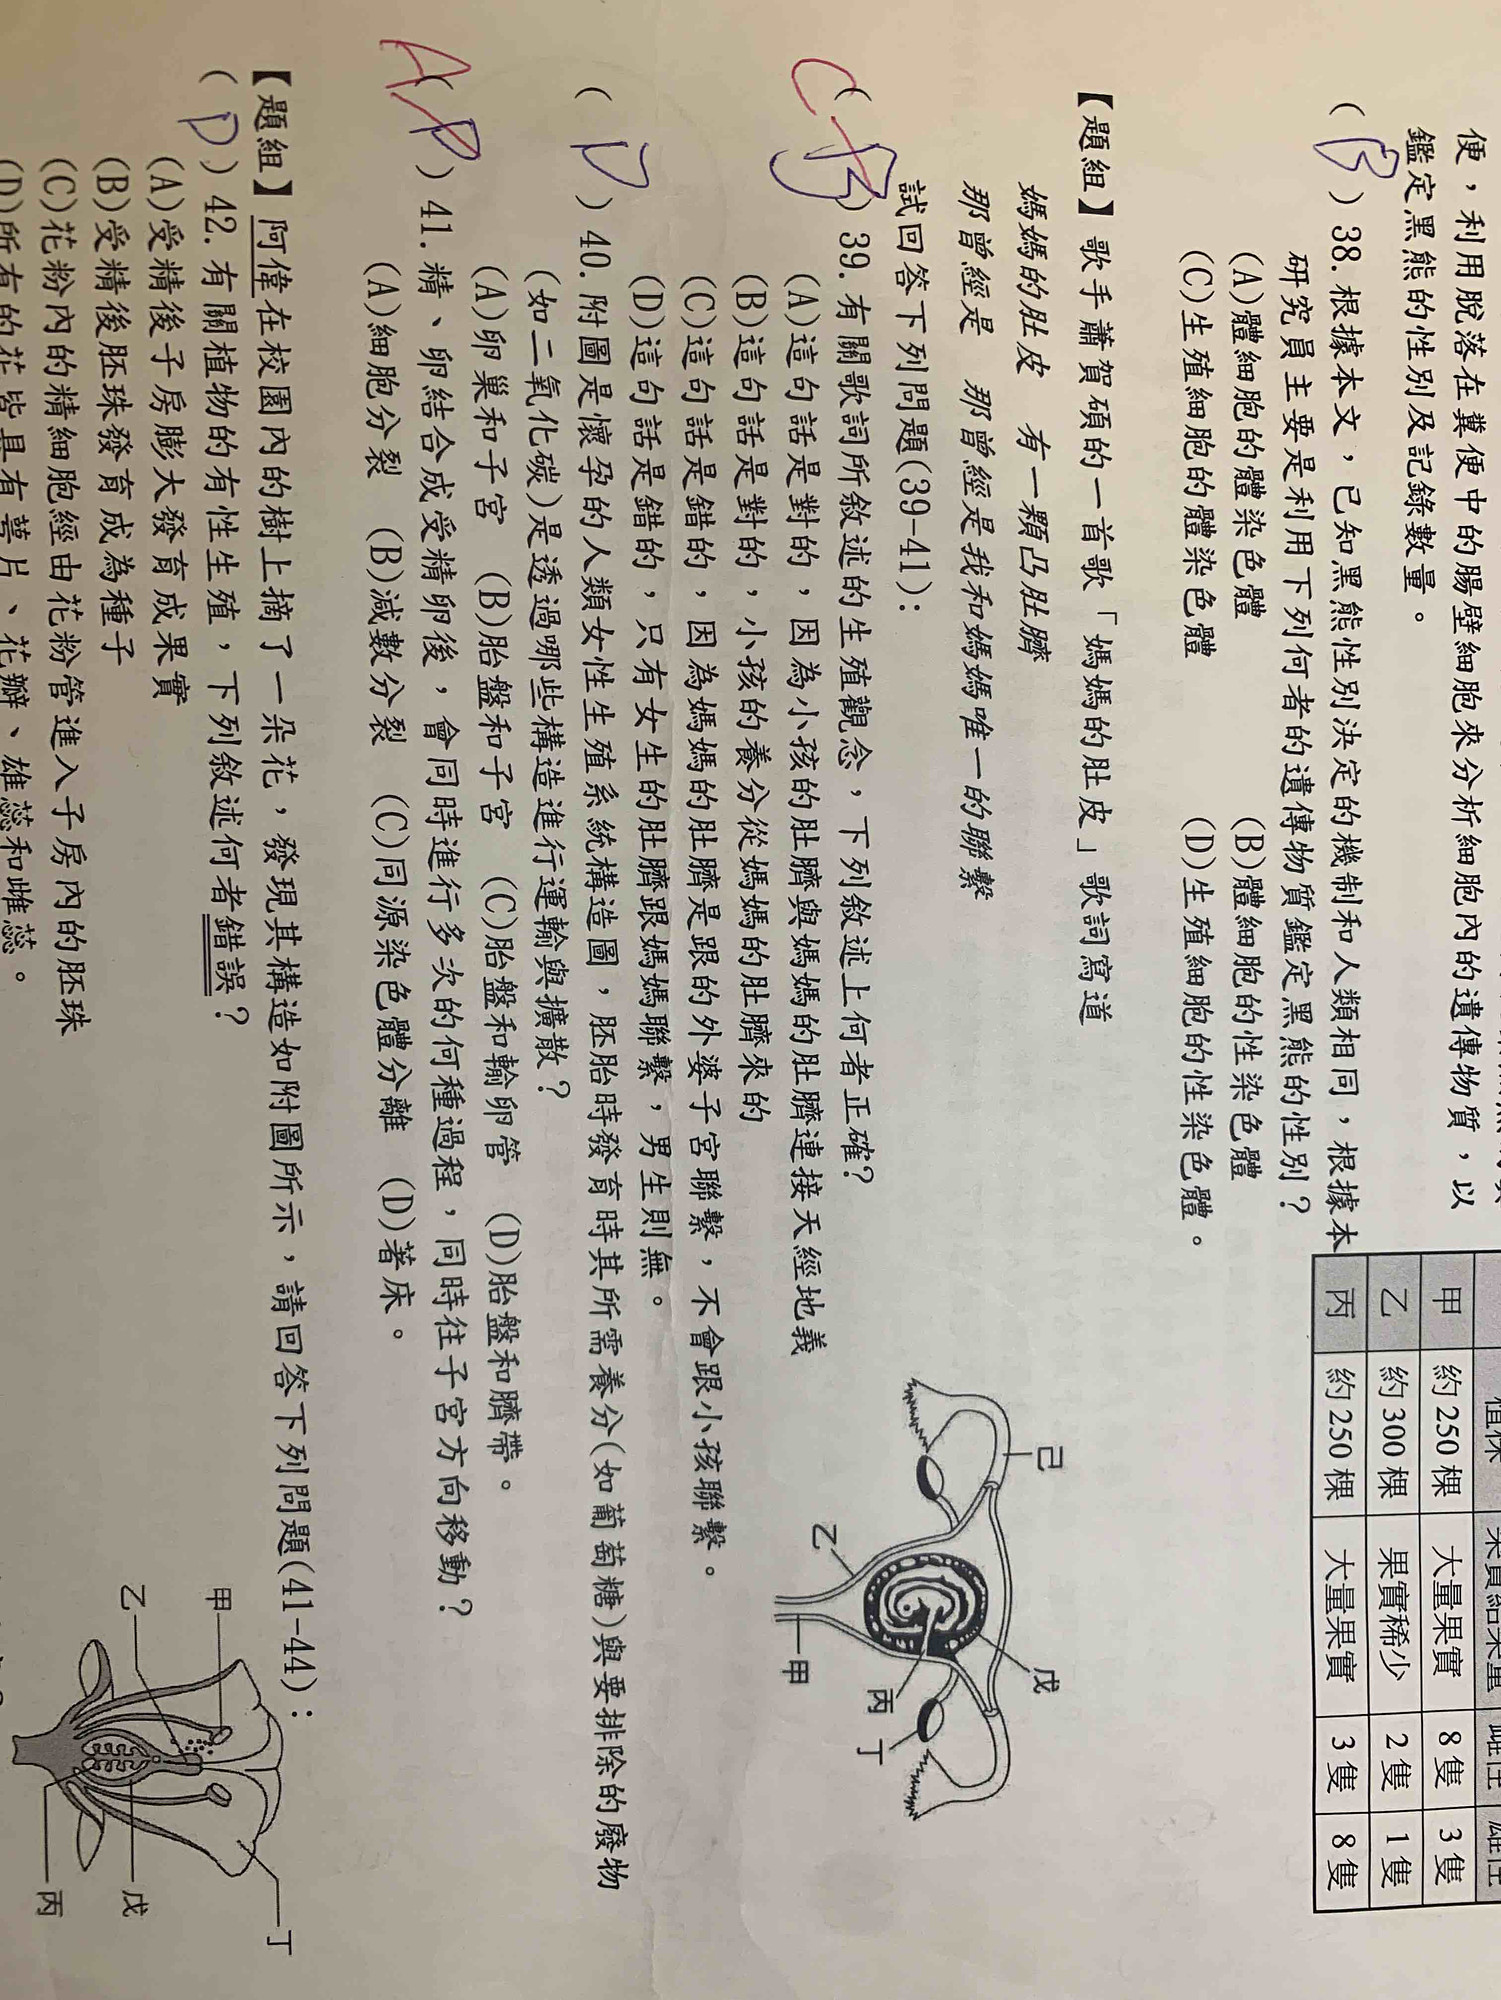 便，利用脫落在糞便中的腸壁細胞來分析細胞內的遺傳物質，以
鑑定黑熊的性別及記錄數量。
(B)38.根據本文，已知黑熊性別決定的機制和人類相同，根據本
研究員主要是利用下列何者的遺傳物質鑑定黑熊的性別？
(A)體細胞的體染色體 (B)體細胞的性染色體
(C)生殖細胞的體染色體 (D)生殖細胞的性染色體。
植株 果實結果量 雌性 雄性
甲 約250棵 大量果實 8隻 3隻
乙 約300棵 果實稀少 2隻 1隻
丙 約250棵 大量果實 3隻 8隻
【題組】歌手蕭賀碩的一首歌「媽媽的肚皮」歌詞寫道
媽媽的肚皮 有一顆凸肚臍
那曾經是 那曾經是我和媽媽唯一的聯繫
試回答下列問題(39-41)：
C
(B)39.有關歌詞所敘述的生殖觀念，下列敘述上何者正確?
(A)這句話是對的，因為小孩的肚臍與媽媽的肚臍連接天經地義
(B)這句話是對的，小孩的養分從媽媽的肚臍來的
(C)這句話是錯的，因為媽媽的肚臍是跟的外婆子宮聯繫，不會跟小孩聯繫。
(D)這句話是錯的，只有女生的肚臍跟媽媽聯繫，男生則無。
己
乙
戊
甲
丙
丁
(D)40.附圖是懷孕的人類女性生殖系統構造圖，胚胎時發育時其所需養分(如葡萄糖)與要排除的廢物
(如二氧化碳)是透過哪些構造進行運輸與擴散？
(A)卵巢和子宮 (B)胎盤和子宮 (C)胎盤和輸卵管 (D)胎盤和臍帶。
A
(D)41.精、卵結合成受精卵後，會同時進行多次的何種過程，同時往子宮方向移動？
(A)細胞分裂 (B)減數分裂 (C)同源染色體分離 (D)著床。
【題組】阿偉在校園內的樹上摘了一朵花，發現其構造如附圖所示，請回答下列問題(41-44)：
(D)42.有關植物的有性生殖，下列敘述何者錯誤？
(A)受精後子房膨大發育成果實
(B)受精後胚珠發育成為種子
(C)花粉內的精細胞經由花粉管進入子房內的胚珠
(D)所有的花皆具有萼片、花瓣、雄蕊和雌蕊。
甲
乙
丁
戊
丙